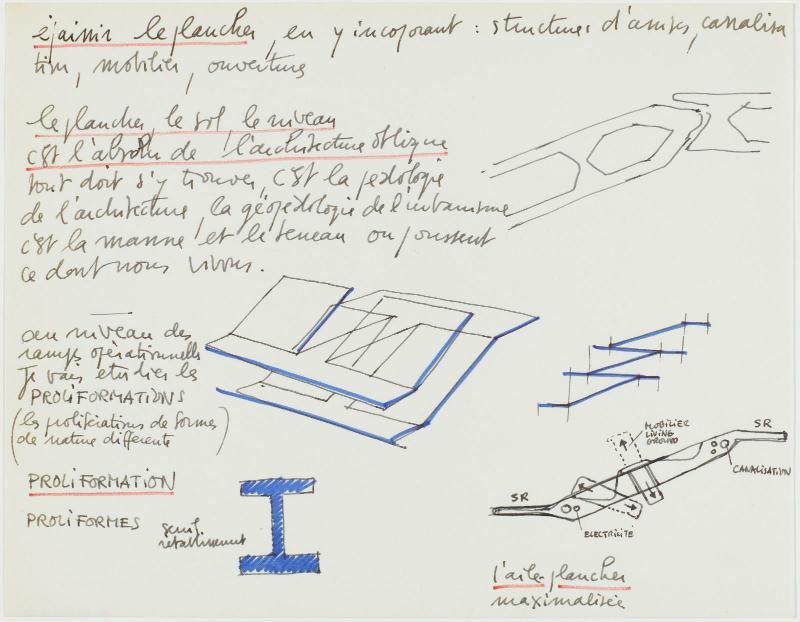 épaissir le plancher, en y incorporant : structures d'assises, canalisa
tion, mobilier, ouverture
le plancher, le sol, le niveau
c'est l'absolu de l'architecture oblique
tout doit s'y trouver, c'est la pédologie
de l'architecture, la géopédologie de l'urbanisme
c'est la manne et le terreau où poussent
ce dont nous vivons.
au niveau des
rampes opérationnelles
Je vais étudier les
PROLIFORMATIONS
(les proliférations de formes
de nature différente)
PROLIFORMATION
PROLIFORMES
seuil
rétablissement
MOBILIER
LIVING
GROUND
SR
CANALISATION
SR
ELECTRICITÉ
l'aile plancher
maximalisée